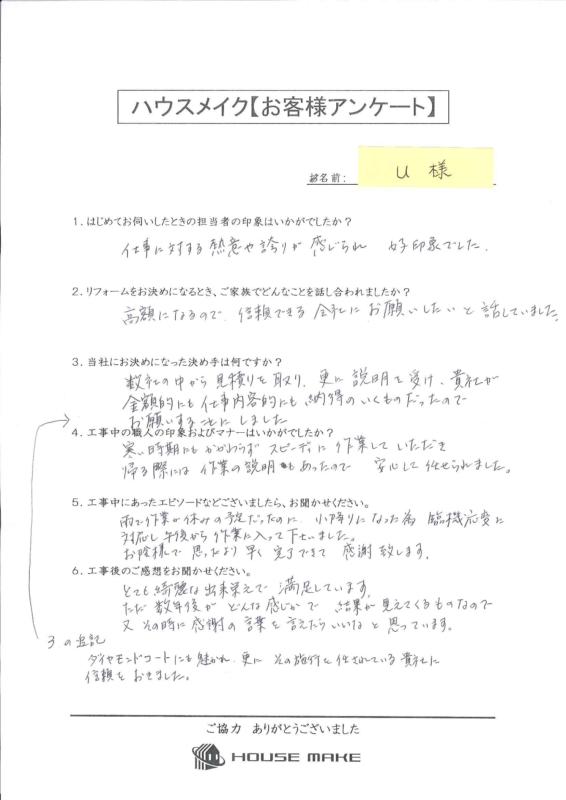 ハウスメイク【お客様アンケート】
御名前： U 様
1．はじめてお伺いしたときの担当者の印象はいかがでしたか？
仕事に対する熱意や誇りが感じられ 好印象でした．
2．リフォームをお決めになるとき、ご家族でどんなことを話し合われましたか？
高額になるので、信頼できる会社にお願いしたいと話していました。
3．当社にお決めになった決め手は何ですか？
数社の中から見積りを取り、更に説明を受け、貴社が
金額的にも仕事内容的にも納得のいくものだったので
お願いすることにしました
4．工事中の職人の印象およびマナーはいかがでしたか？
寒い時期にもかかわらずスピーディに作業していただき
帰る際には作業の説明もあったので 安心して任せられました。
5．工事中にあったエピソードなどございましたら、お聞かせください。
雨で作業が休みの予定だったのに、小降りになった為 臨機応変に
対応し午後から作業に入って下さいました。
お陰様で思ったより早く完了できて 感謝致します．
6．工事後のご感想をお聞かせください。
とても綺麗な出来栄えで満足しています．
ただ数年後がどんな感じかで 結果が見えてくるものなので
又その時に感謝の言葉を言えたらいいなと思っています。
3の追記
ダイヤモンドコートにも魅かれ、更にその施行を任されている貴社に
信頼をおきました。
ご協力 ありがとうございました
HOUSE MAKE